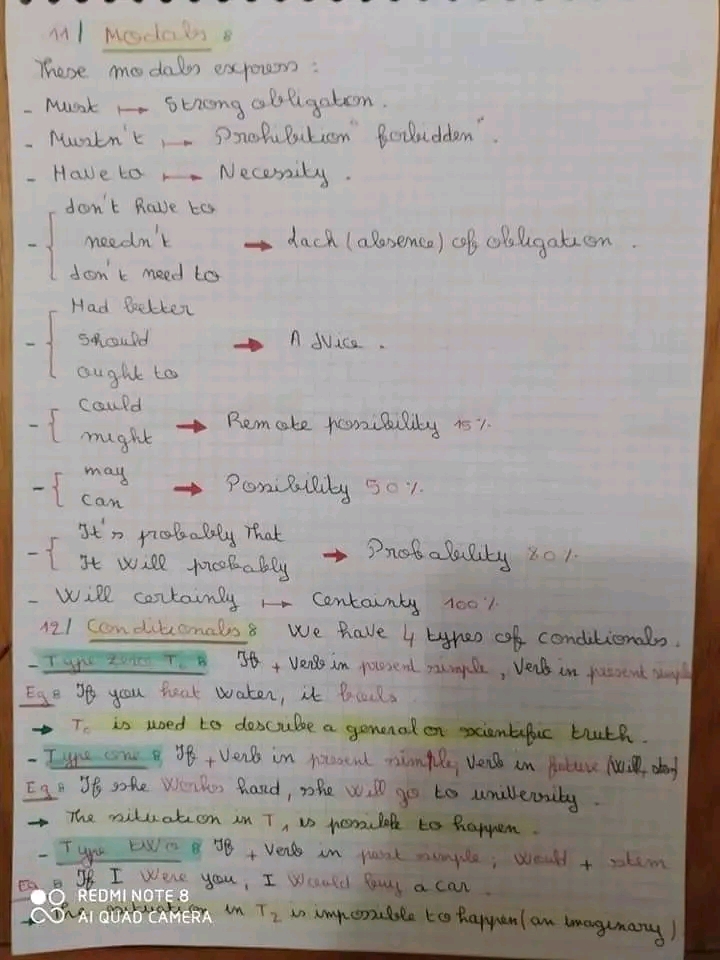 11/ Modals :
These modals express :
- Must ↦ Strong obligation.
- Mustn't ↦ Prohibition "forbidden".
- Have to ↦ Necessity.
don't have to
- needn't → Lach (absence) of obligation.
don't need to
Had better
- should → Advice.
ought to
could
- might → Remote possibility 15%
may
- can → Possibility 50%
It's probably that
- It will probably → Probability 80%
- Will certainly ↦ Centainty 100%
12/ Conditionals : We have 4 types of conditionals.
- Type zero T₀ : If + Verb in present simple, Verb in present simple
Eg : If you heat water, it boils.
→ T₀ is used to describe a general or scientific truth.
- Type one : If + Verb in present simple, Verb in future (will + stem)
Eg : If she works hard, she will go to university.
→ The situation in T₁ is possible to happen.
- Type two : If + Verb in past simple, would + stem
Eg : If I were you, I would buy a car.
→ The situation in T₂ is impossible to happen (an imaginary)
REDMI NOTE 8
AI QUAD CAMERA